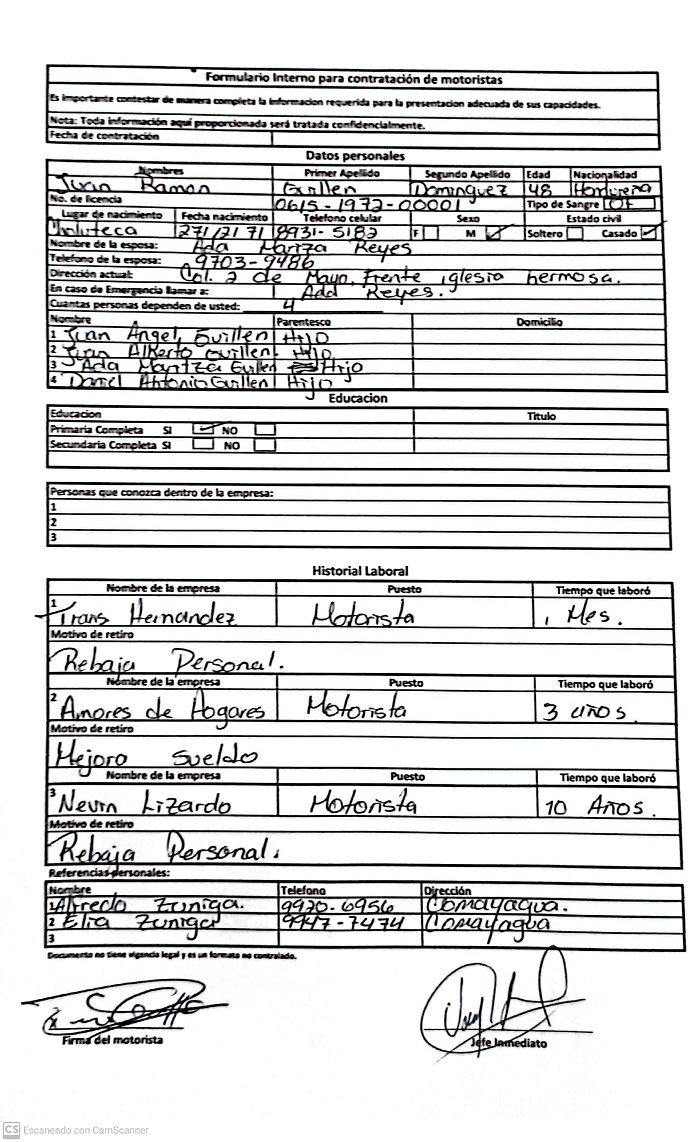 Formulario Interno para contratación de motoristas
Es importante contestar de manera completa la informacion requerida para la presentacion adecuada de sus capacidades.
Nota: Toda información aquí proporcionada será tratada confidencialmente.
Fecha de contratación
Datos personales
Nombres Primer Apellido Segundo Apellido Edad Nacionalidad
Juan Ramon Guillen Dominguez 48 Hondureña
No. de licencia 0615-1972-00001 Tipo de Sangre OT
Lugar de nacimiento Fecha nacimiento Telefono celular Sexo Estado civil
Choluteca 271 8931-5182 F M Soltero Casado
Nombre de la esposa: Ada Maritza Reyes
Telefono de la esposa: 9703-9486
Dirección actual: Col. 2 de Mayo, Frente iglesia hermosa.
En caso de Emergencia llamar a: Add Reyes.
Cuantas personas dependen de usted: 4
Nombre Parentesco Domicilio
1 Juan Angel Guillen Hijo
2 Juan Alberto Guillen Hijo
3 Ada Maritza Guillen Hijo
4 Daniel Antonio Guillen Hijo
Educacion
Educacion Titulo
Primaria Completa SI NO
Secundaria Completa SI NO
Personas que conozca dentro de la empresa:
1
2
3
Historial Laboral
Nombre de la empresa Puesto Tiempo que laboró
1 Trans Hernandez Motorista 1 Mes.
Motivo de retiro
Rebaja Personal.
Nombre de la empresa Puesto Tiempo que laboró
2 Amores de Hogares Motorista 3 años.
Motivo de retiro
Mejoro sueldo
Nombre de la empresa Puesto Tiempo que laboró
3 Nevin Lizardo Motorista 10 Años.
Motivo de retiro
Rebaja Personal.
Referencias personales:
Nombre Telefono Dirección
1 Alfredo Zuniga. 9920-6956 Comayagua.
2 Elia Zuniga 9947-7474 Comayagua
3
Documento no tiene vigencia legal y es un formato no controlado.
Firma del motorista Jefe Inmediato
CS Escaneado con CamScanner